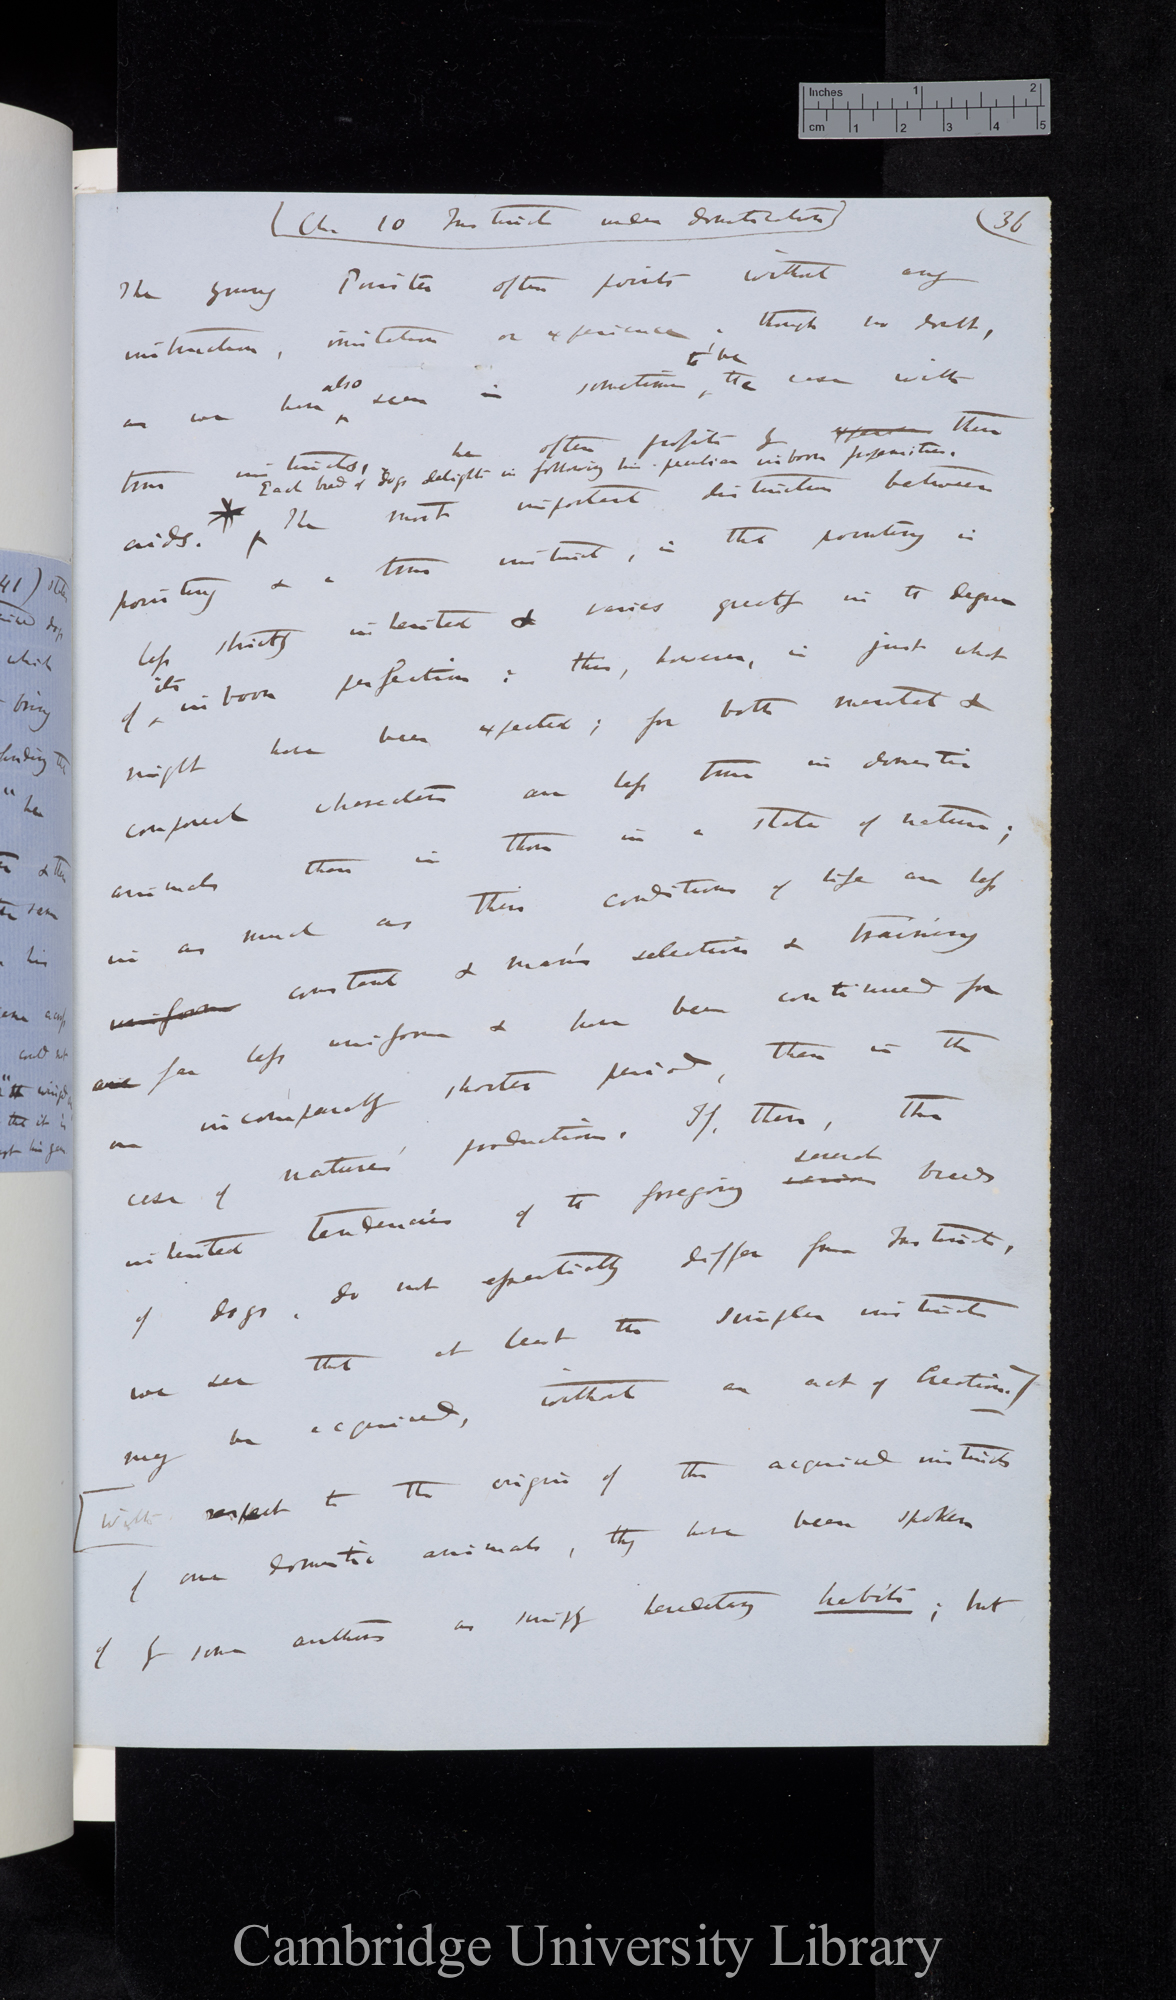 Inches 1 2
cm 1 2 3 4 5
(Ch. 10 Instinct under domestication) (36
The young Pointer often points without any
instruction, imitation or experience; though no doubt,
as we have also seen is sometimes to be the case with
true instincts, he often profits by experience these
aids. * Each breed of dogs delights in following his peculiar inborn propensities.
The most important distinction between
pointing & a true instinct, is that pointing is
less strictly inherited & varies greatly in the degree
of its inborn perfection: this, however, is just what
might have been expected; for both mental &
corporeal characters are less true in domestic
animals than in those in a state of nature;
in as much as their conditions of life are less
uniform constant & man's selection & training
are far less uniform & have been continued for
an incomparably shorter period, than in the
case of nature's productions. If, then, the
inherited tendencies of the foregoing several various breeds
of dogs, do not essentially differ from Instincts,
we see that at least the simpler instincts
may be acquired, without an act of Creation.]
[With respect to the origin of the acquired instincts
of our domestic animals, they have been spoken
of by some authors as simply hereditary habits; but
41)
which
bring
"he
his
could not
Cambridge University Library